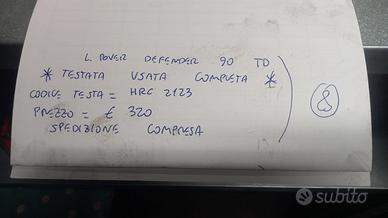 L. ROVER DEFENDER 90 TD
* TESTATA USATA COMPLETA *
CODICE TESTA = HRC 2123
PREZZO = € 320
SPEDIZIONE COMPRESA
8
subito